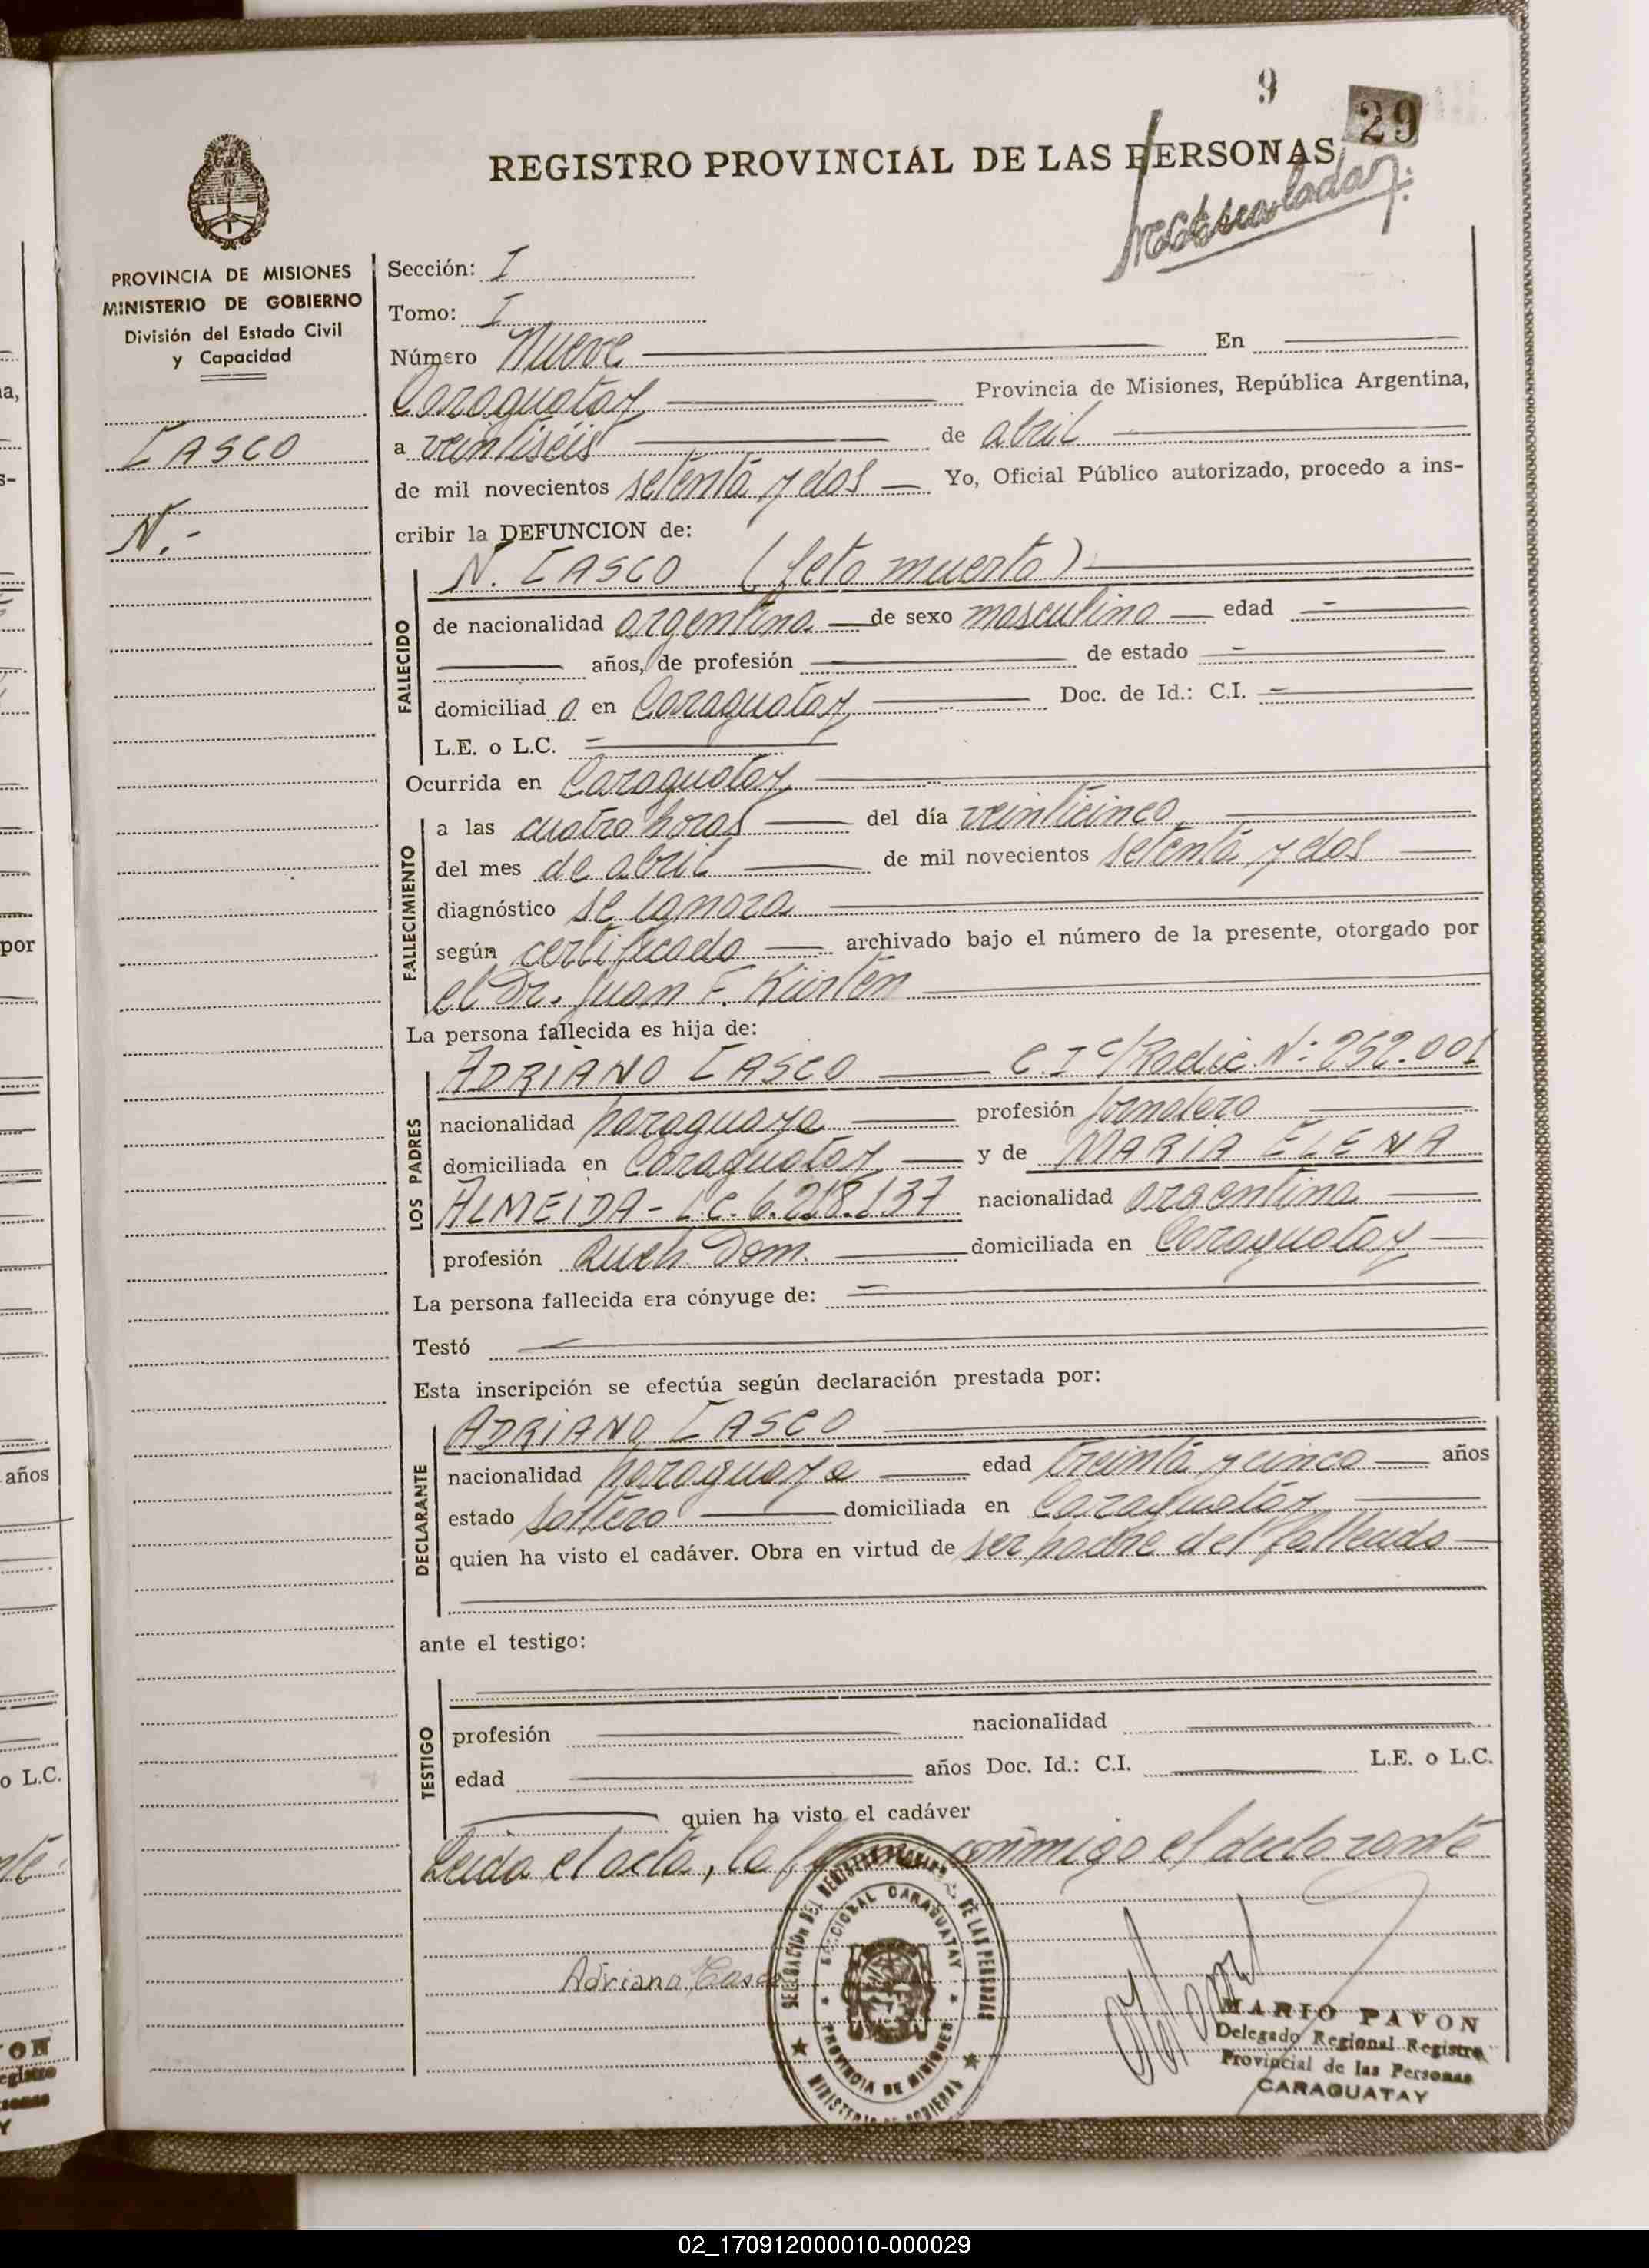 9
29
REGISTRO PROVINCIAL DE LAS PERSONAS
PROVINCIA DE MISIONES
MINISTERIO DE GOBIERNO
División del Estado Civil
y Capacidad
CASCO
N.-
Sección: I
Tomo: I
Número Nueve En
Caraguatay Provincia de Misiones, República Argentina,
a veintiséis de abril
de mil novecientos setenta y dos Yo, Oficial Público autorizado, procedo a ins-
cribir la DEFUNCION de:
N. CASCO (feto muerto)
FALLECIDO
de nacionalidad argentina de sexo masculino edad -
años, de profesión de estado -
domiciliad o en Caraguatay Doc. de Id.: C.I. -
L.E. o L.C. -
Ocurrida en Caraguatay
FALLECIMIENTO
a las cuatro horas del día veinticinco
del mes de abril de mil novecientos setenta y dos
diagnóstico se ignora
según certificado archivado bajo el número de la presente, otorgado por
el Dr. Juan F. Kürten
La persona fallecida es hija de:
LOS PADRES
ADRIANO CASCO C.I c/Radic. N: 252.001
nacionalidad paraguaya profesión Jornalero
domiciliada en Caraguatay y de MARIA ELENA
ALMEIDA - LC. 6.218.137 nacionalidad argentina
profesión Queh. Dom. domiciliada en Caraguatay
La persona fallecida era cónyuge de: -
Testó
Esta inscripción se efectúa según declaración prestada por:
DECLARANTE
ADRIANO CASCO
nacionalidad paraguaya edad treinta y cinco años
estado soltero domiciliada en Caraguatay
quien ha visto el cadáver. Obra en virtud de ser padre del fallecido
ante el testigo:
TESTIGO
profesión nacionalidad
edad años Doc. Id.: C.I. L.E. o L.C.
quien ha visto el cadáver
Leida el acta, la conmigo el declarante
Adriano Casco
DELEGACION DEL REGISTRO PROVINCIAL DE LAS PERSONAS
SECCIONAL CARAGUATAY
PROVINCIA DE MISIONES
MINISTERIO DE GOBIERNO
MARIO PAVON
Delegado Regional Registro
Provincial de las Personas
CARAGUATAY
a,
s-
por
años
o L.C.
02_170912000010-000029